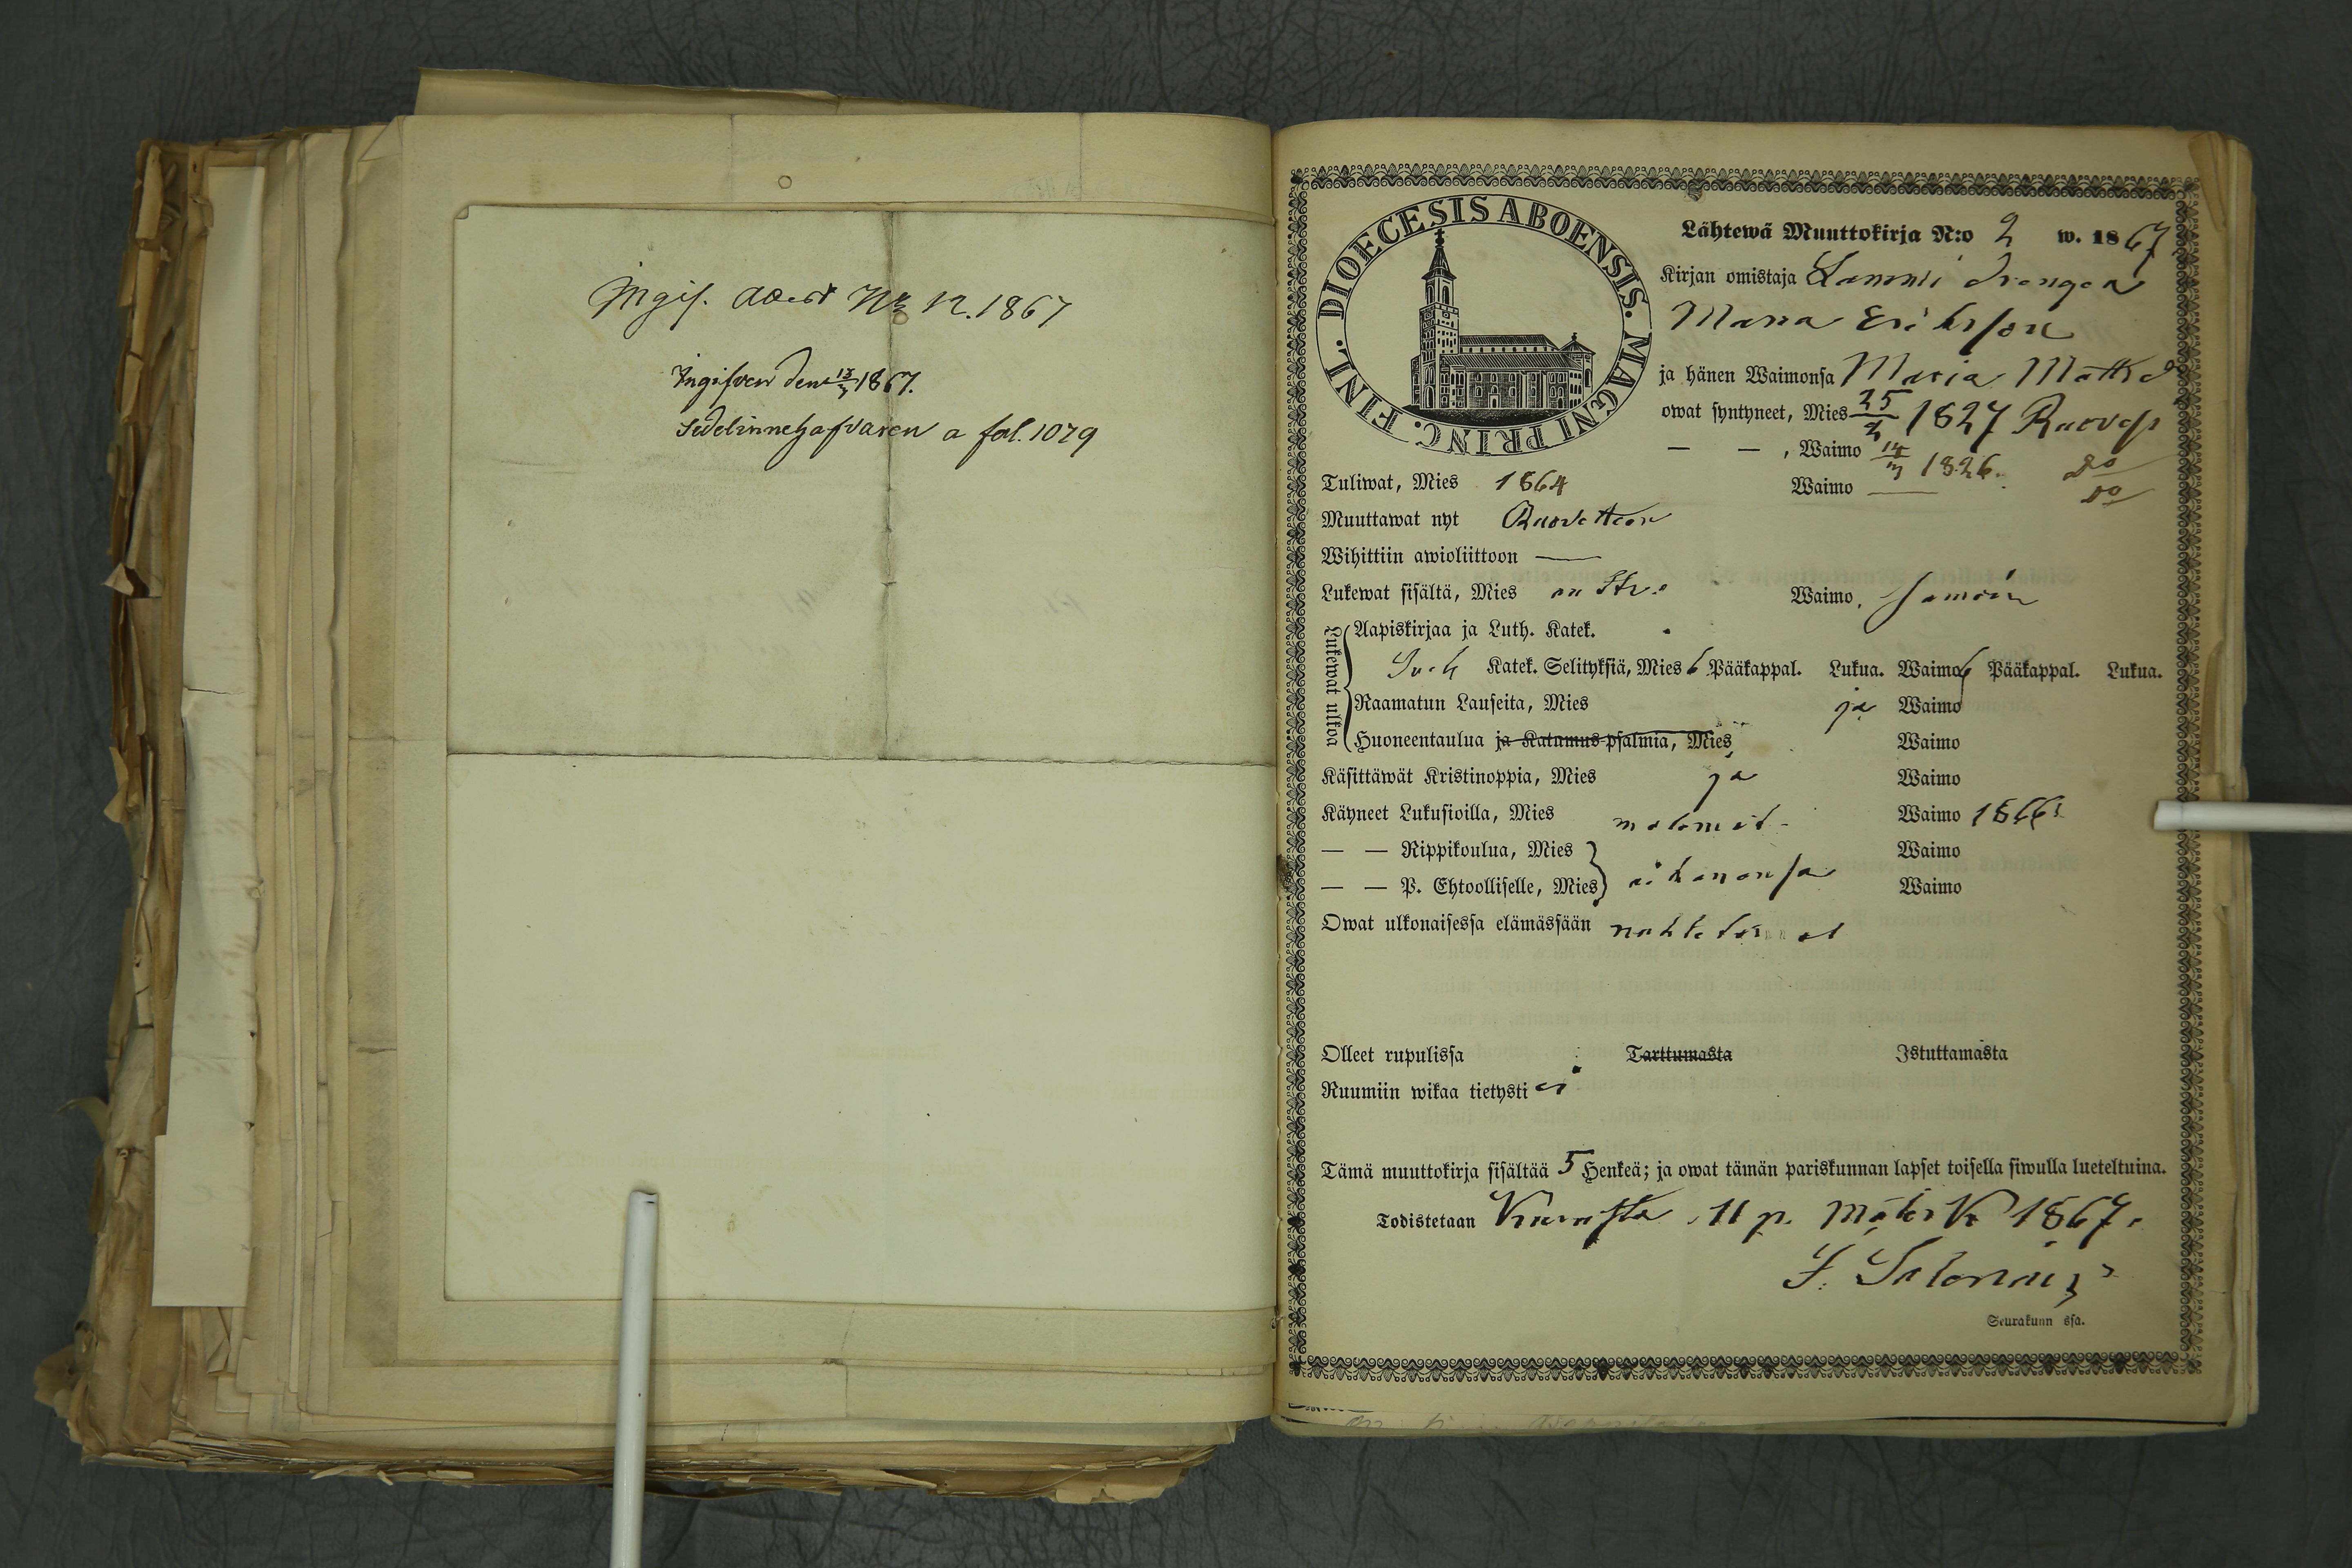 Ingif. attest No 12. 1867
Ingifven den 13/3 1867.
Sedelinnehafvaren a fol. 1079
DIOECESIS ABOENSIS. MAGNI PRINC. FINL.
Lähtewä Muuttokirja N:o 2 w. 1867
Kirjan omistaja Lammi
Eriksson
ja hänen Waimonsa Maria Mattsd
owat syntyneet, Mies 25/2 1827 Ruoves
— — , Waimo 14/3 1826. Do
Tuliwat, Mies 1864 Waimo — Do
Muuttawat nyt Ruoveteen
Wihittiin awioliittoon —
Lukewat sisältä, Mies Waimo, samoin
Lukewat ulkoa
Aapiskirjaa ja Luth. Katek.
Katek. Selityksiä, Mies 6 Pääkappal. Lukua. Waimo 6 Pääkappal. Lukua.
Raamatun Lauseita, Mies ja Waimo
Huoneentaulua ja Katumus-psalmia, Mies Waimo
Käsittäwät Kristinoppia, Mies ja Waimo
Käyneet Lukusioilla, Mies molemat Waimo 1866
— — Rippikoulua, Mies Waimo
— — P. Ehtoolliselle, Mies aikanansa Waimo
Owat ulkonaisessa elämässään
Olleet rupulissa Tarttumasta Istuttamasta
Ruumiin wikaa tietysti ei
Tämä muuttokirja sisältää 5 Henkeä; ja owat tämän pariskunnan lapset toisella siwulla lueteltuina.
Todistetaan 11 p. 1867.
Seurakunn ssa.